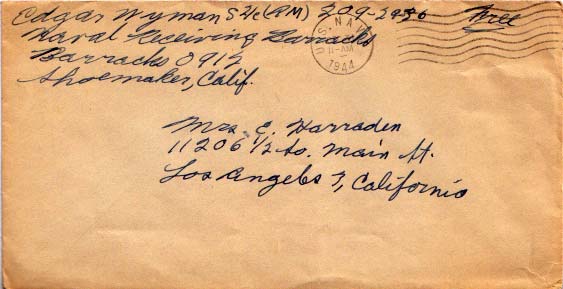 Edgar Wyman S 2/c (RM) 209-2956 Free
Naval Receiving Barracks
Barracks 0912
Shoemaker, Calif.
U.S. NAVY
11-AM
1944
Mrs. E. Harraden
11206 1/2 So. Main St.
Los Angeles 3, California